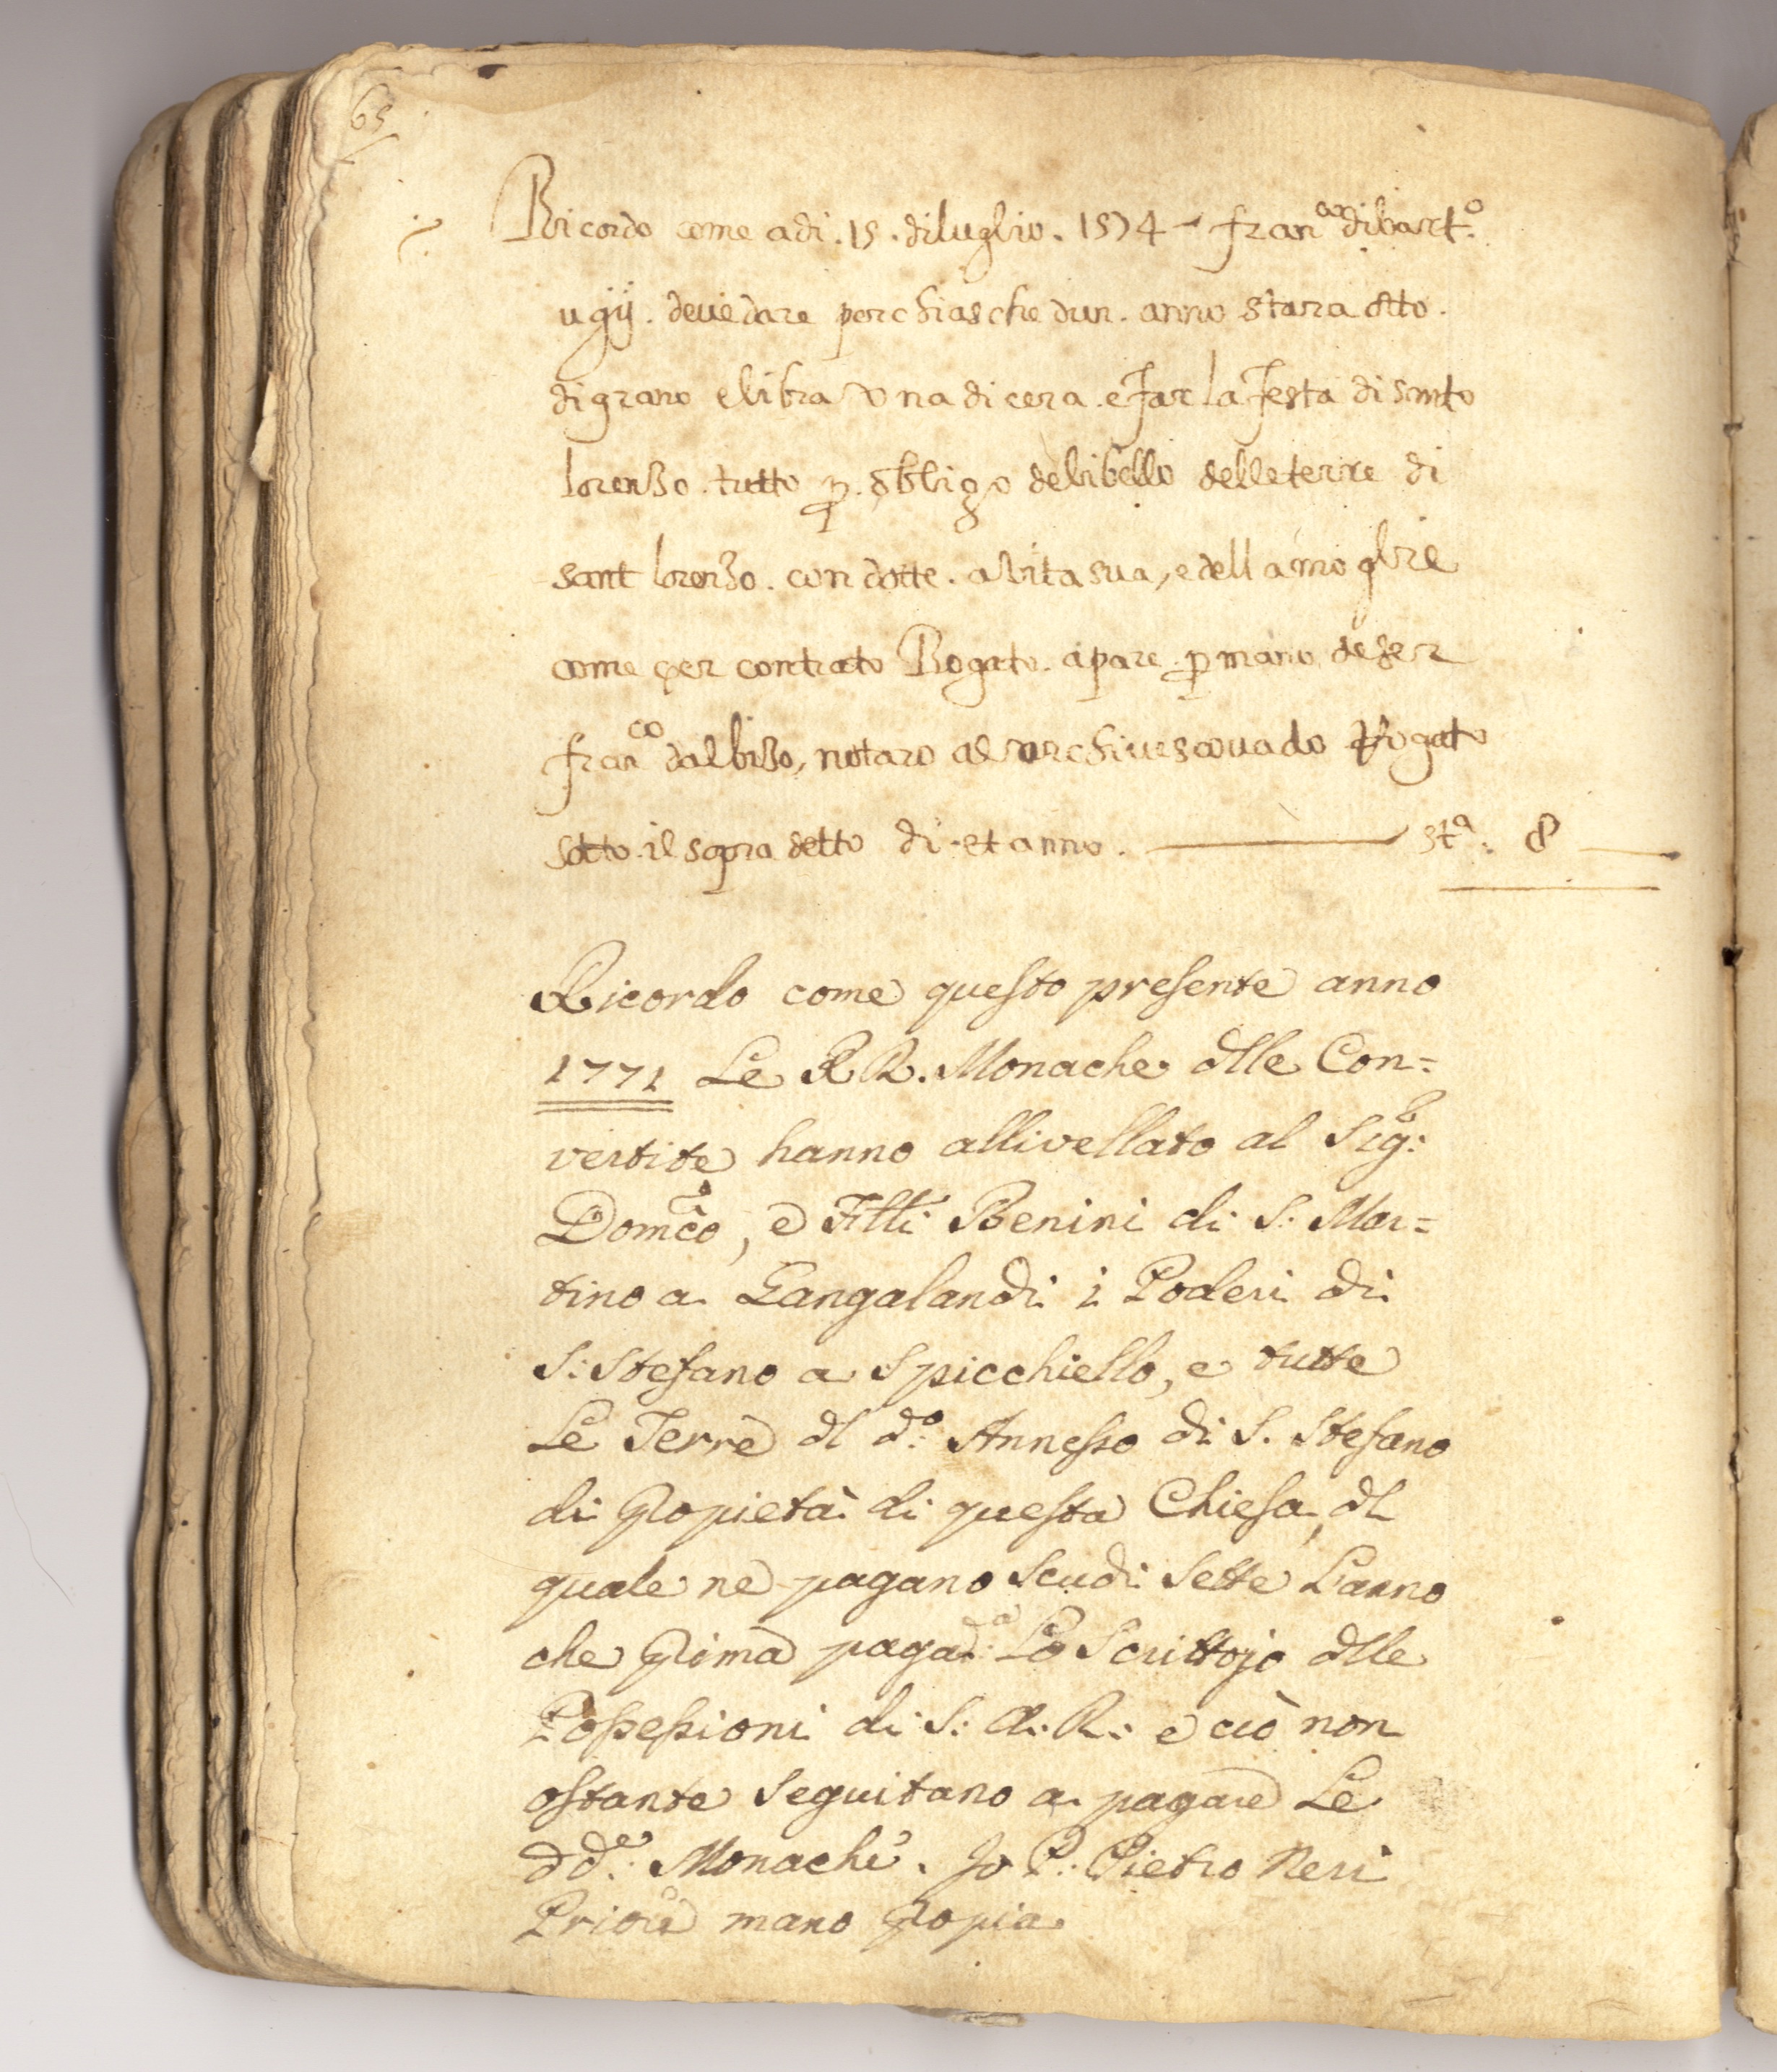 65
Ricordo come adi . 15 . diluglio . 1574 - fran.co dibart.o
ugij . deue dare perchiasche dun . anno stara otto .
di grano e libra una di cera . e far la festa di santo
lorenzo . tutto p. obbligo de libello delle terre di
sant lorenzo . con dotte . a vita sua, e della moglie
come per contrato Rogato . apare . p mano de ser
fran.co dalbizo, notaro al archivescouado Rogato
sotto . il sopra detto di . et anno . st.a : 8
Ricordo come questo presente anno
1771 Le R R. Monache dlle Con=
vertite hanno allivellato al Sig:e
Domco, e Flli Benini di S: Mar=
tino a Gangalandi i Poderi di
S: Stefano a Spicchiello, e tutte
Le Terre dl d:o Annesso di S. Stefano
di Propietà di questa Chiesa, dl
quale ne pagano Scudi Sette L'anno
che Prima pagava Lo Scrittojo dlle
Possessioni di S: A: R: e ciò non
ostante Seguitano a pagare Le
dd:e Monache . Io P: Pietro Neri
Priore mano Propia